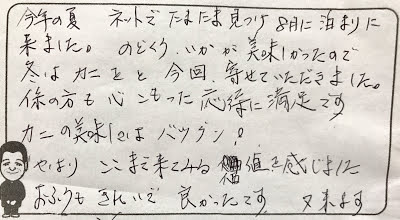 今年の夏 ネットで たまたま見つけ 8月に泊まりに
来ました。 のどくろ、いかが美味しかったので
冬は カニをと 今回、寄せていただきました。
係の方も 心こもった応待に満足です
カニの美味しさは バツグン!
やはり ここまで来てみる 価値を感じました
おふろも きれいで 良かったです。 又来ます